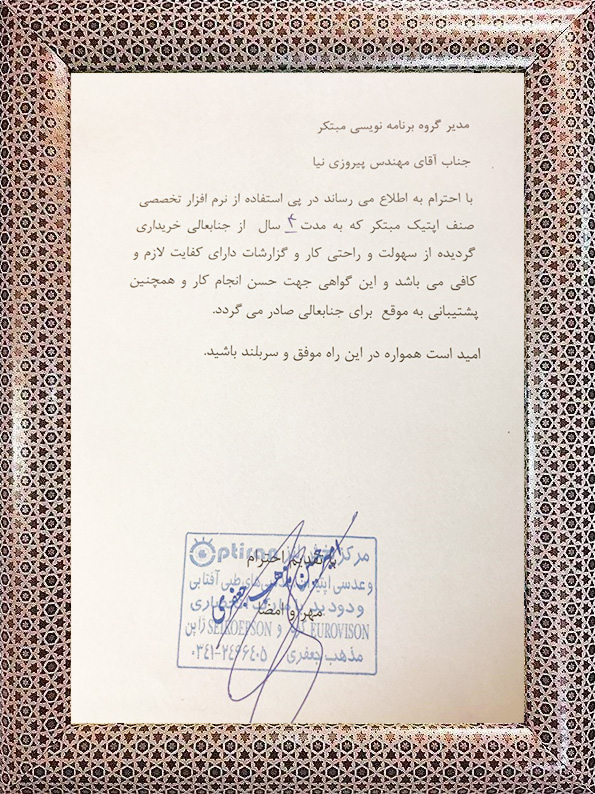 مدیر گروه برنامه نویسی مبتکر
جناب آقای مهندس پیروزی نیا
با احترام به اطلاع می رساند در پی استفاده از نرم افزار تخصصی
صنف اپتیک مبتکر که به مدت ۴ سال از جنابعالی خریداری
گردیده از سهولت و راحتی کار و گزارشات دارای کفایت لازم و
کافی می باشد و این گواهی جهت حسن انجام کار و همچنین
پشتیبانی به موقع برای جنابعالی صادر می گردد.
امید است همواره در این راه موفق و سربلند باشید.
مرکز
تقدیم احترام
و عدسی طبی آفتابی
مهر و امضا
EUROVISON و SEIKOEPSON ژاپن
مذهب جعفری ۰۳۴۱-۲۴۹۶۴۰۵